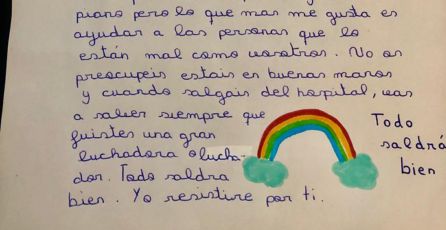 piano pero lo que mas me gusta es
ayudar a las personas que lo
están mal como vosotros. No os
preocupeis estais en buenas manos
y cuando salgais del hospital, vas
a saber siempre que
fuistes una gran
luchadora o lucha-
dor. Todo saldra
bien. Yo resistire por ti.
Todo
saldrá
bien